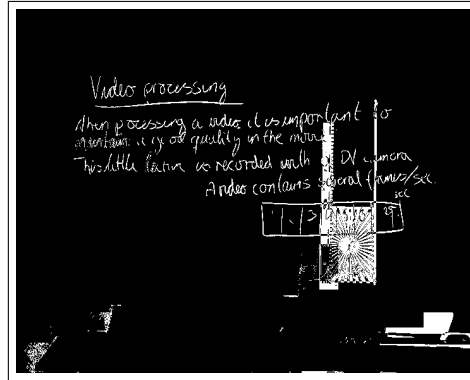 Video processing
When processing a video it is important to
maintain a good quality in the movie
This little lecture is recorded with a DV camera
A video contains several frames/sec.
sec
1 3 4 5 6 29